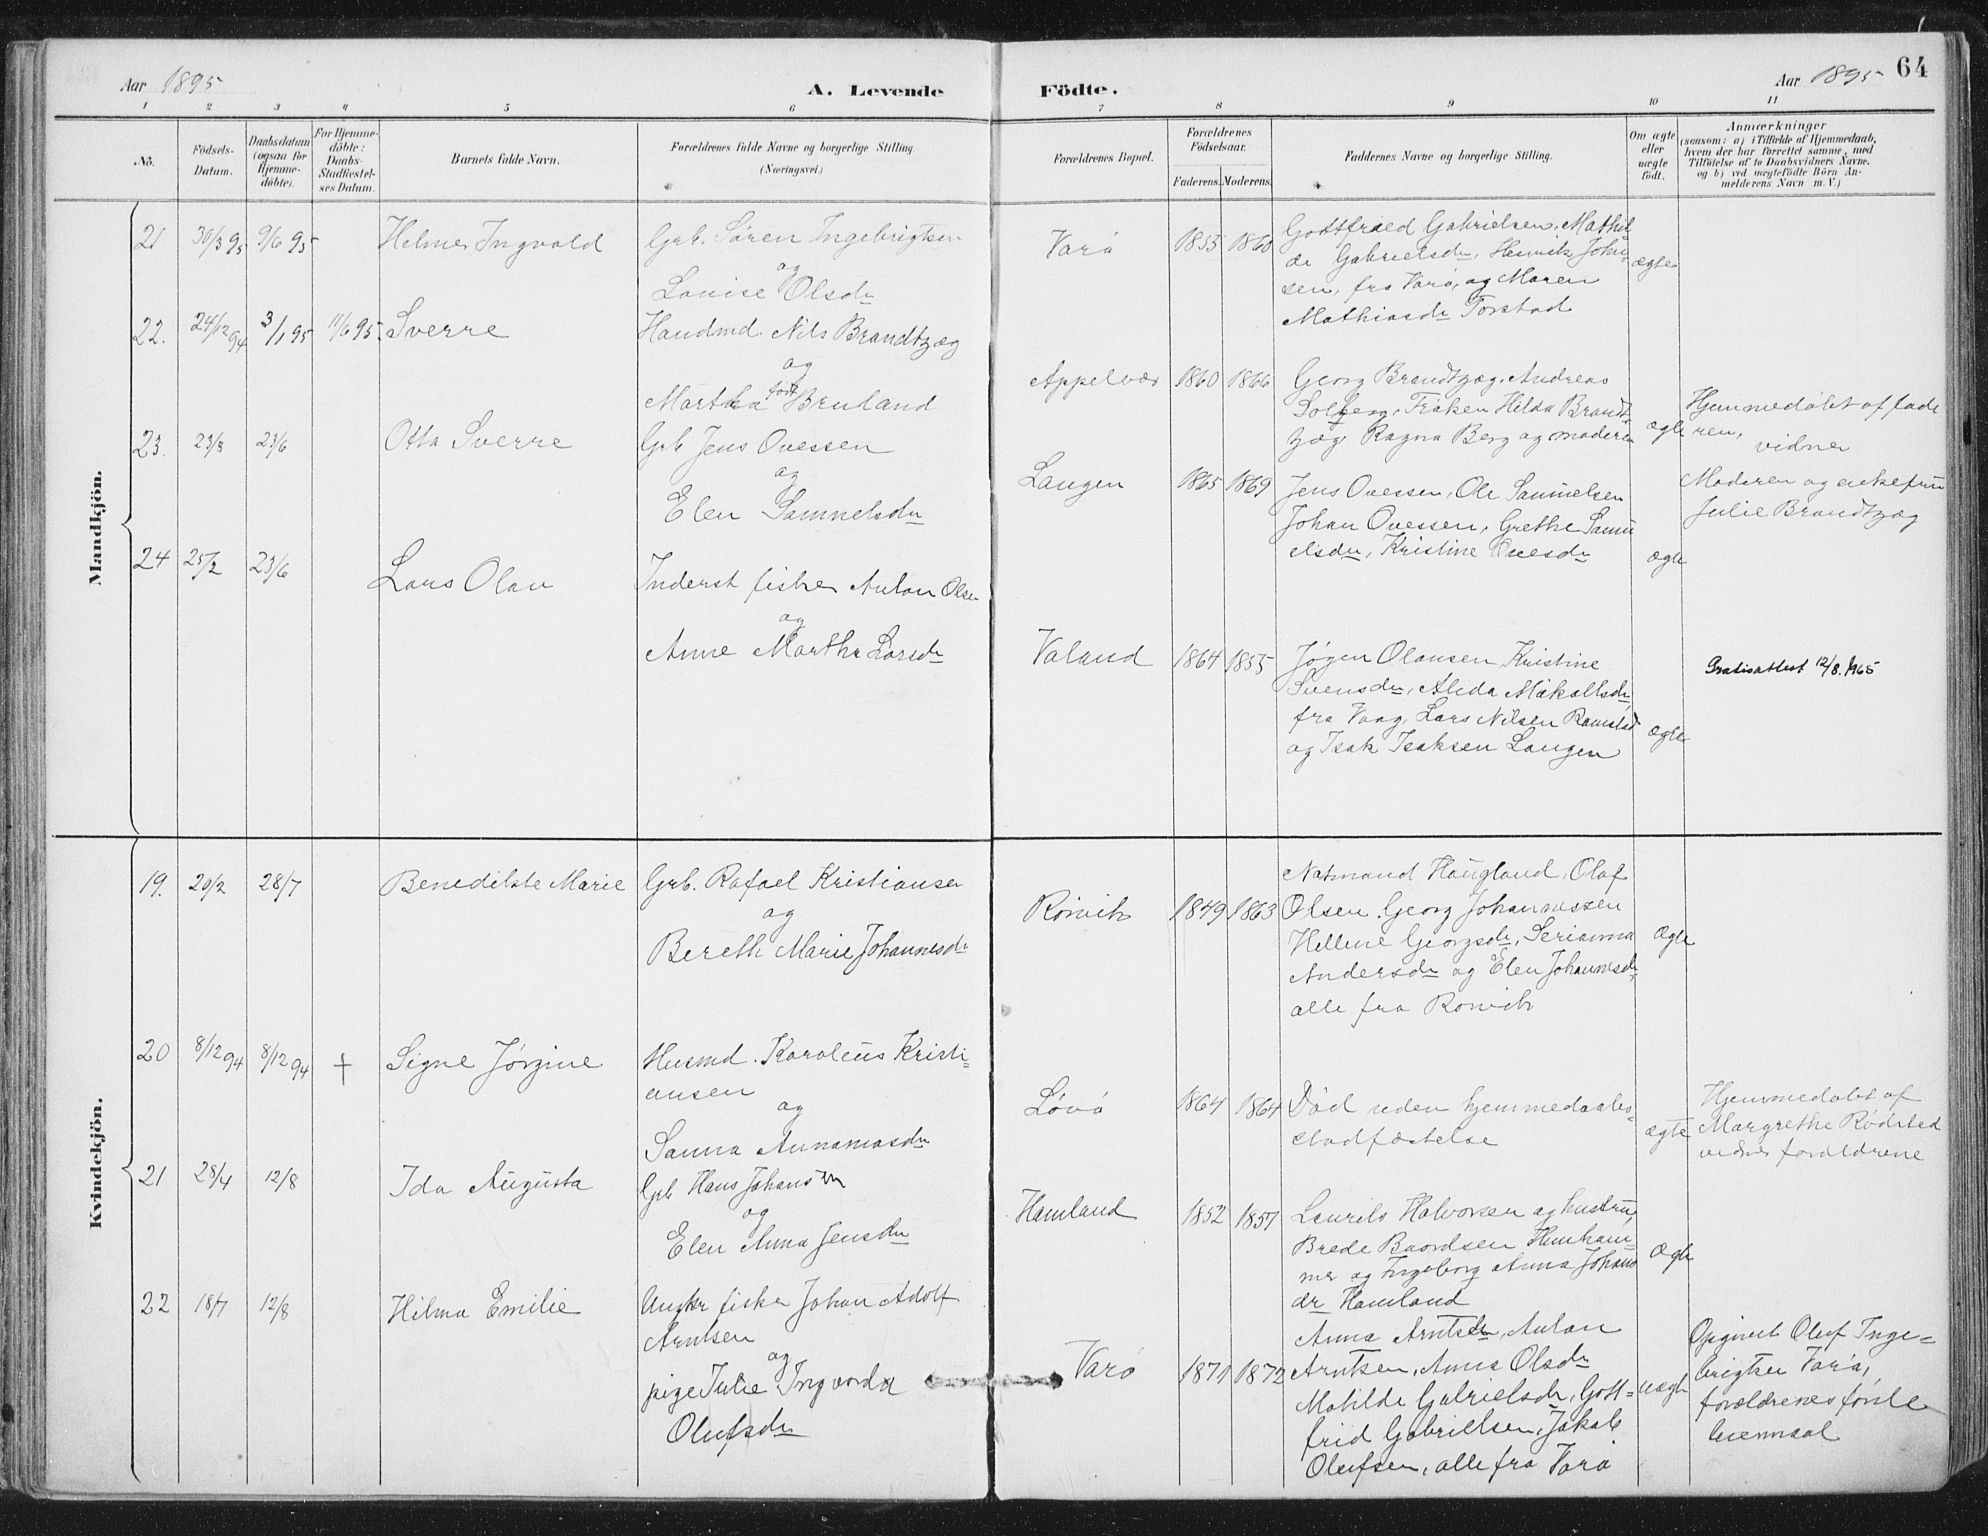 64
Aar 1895
A. Levende Födte.
Aar 1895
1 2 3 4 5 6 7 8 9 10 11
No.
Födsels-
Datum.
Daabsdatum
(ogsaa for
Hjemme-
döbte).
For Hjemme-
döbte:
Daabs-
Stadfæstel-
ses Datum.
Barnets fulde Navn.
Forældrenes fulde Navne og borgerlige Stilling.
(Næringsvei.)
Forældrenes Bopæl.
Forældrenes
Födselsaar.
Faderens. Moderens.
Faddernes Navne og borgerlige Stilling.
Om ægte
eller
uægte
födt.
Anmærkninger
(saasom: a) i Tilfælde af Hjemmedaab,
hvem der har forrettet samme, med
Tilföielse af to Daabsvidners Navne,
og b) ved uægtefödte Börn An-
melderens Navn m. V.)
Mandkjön.
21 30/3 95 9/6 95 Helmer Ingvald
Grb. Søren Ingebrigtsen
og
Louise Olsdr
Varø 1855 1860
Gottfried Gabrielsen, Mathil-
de Gabrielsdr, Henrik Johan-
sen, fra Varø, og Maren
Mathiasdr Torstad
ægte
22. 24/12 94 3/1 95 11/6 95. Sverre
Handmd. Nils Brandtzæg
og
Martha født Bruland
Appelvær 1860 1866
Georg Brandtzæg, Andreas
Solberg, Frøken Hilda Brandt-
zæg Ragna Berg og moderen
ægte
Hjemmedøbt af fade
ren,
vidner
Moderen og enkefru
Julie Brandtzæg
23. 23/3 23/6 Otto Sverre
Grb Jens Ovessen
og
Elen Samuelsdr
Langen 1865 1869
Jens Ovessen, Ole Samuelsen
Johan Ovessen, Grethe Samu
elsdr, Kristine Ovesdr
ægte
24 25/2 23/6 Lars Olav
Inderst fisker Anton Olsen
og
Anne Marthe Larsdr
Valand 1864 1855
Jørgen Olausen, Kristine
Svensdr, Alida Mikallsdr
fra Vaag, Lars Nilsen Ramstad
og Isak Isaksen Langen
ægte
Gratisattest 12/8. 1965
Kvindekjön.
19. 20/2 28/7 Benedikte Marie
Grb. Rafael Kristiansen
og
Bereth Marie Johannesdr
Rørvik 1849 1863
Natmand Haugland, Olaf
Olsen, Georg Johannessen
Helline Georgsdr, Serianna
Andersdr og Elen Johannesdr,
alle fra Rørvik
ægte
20 8/12 94 8/12 94 † Signe Jørgine
Husmd. Karoleus Kristi-
ansen
og
Sanna Annaniasdr
Løvø 1864 1864
Død uden hjemmedaabs-
stadfæstelse
ægte
Hjemmedøbt af
Margrethe Rødsted
vidner forældrene
21 28/4 12/8 Ida Augusta
Grb Hans Johansen
og
Elen Anna Jensdr
Hamland 1852 1857
Laurits Halvorsen og hustru,
Brede Baordsen Humham-
mer og Ingeborg Anna Johans
dr Hamland
ægte
22 18/7 12/8 Hilma Emilie
Ungkr fisker Johan Adolf
Arntsen
og
pige Julie Ingvarda
Olufsdr
Varø 1871 1872
Anna Arntsdr, Anton
Arntsen, Anna Olsdr
Matilde Gabrielsdr, Gott-
frid Gabrielsen, Jakob
Olufsen, alle fra Varø
uægte
Opgivet Oluf Inge-
brigtsen Varø,
forældrenes første
leiermaal